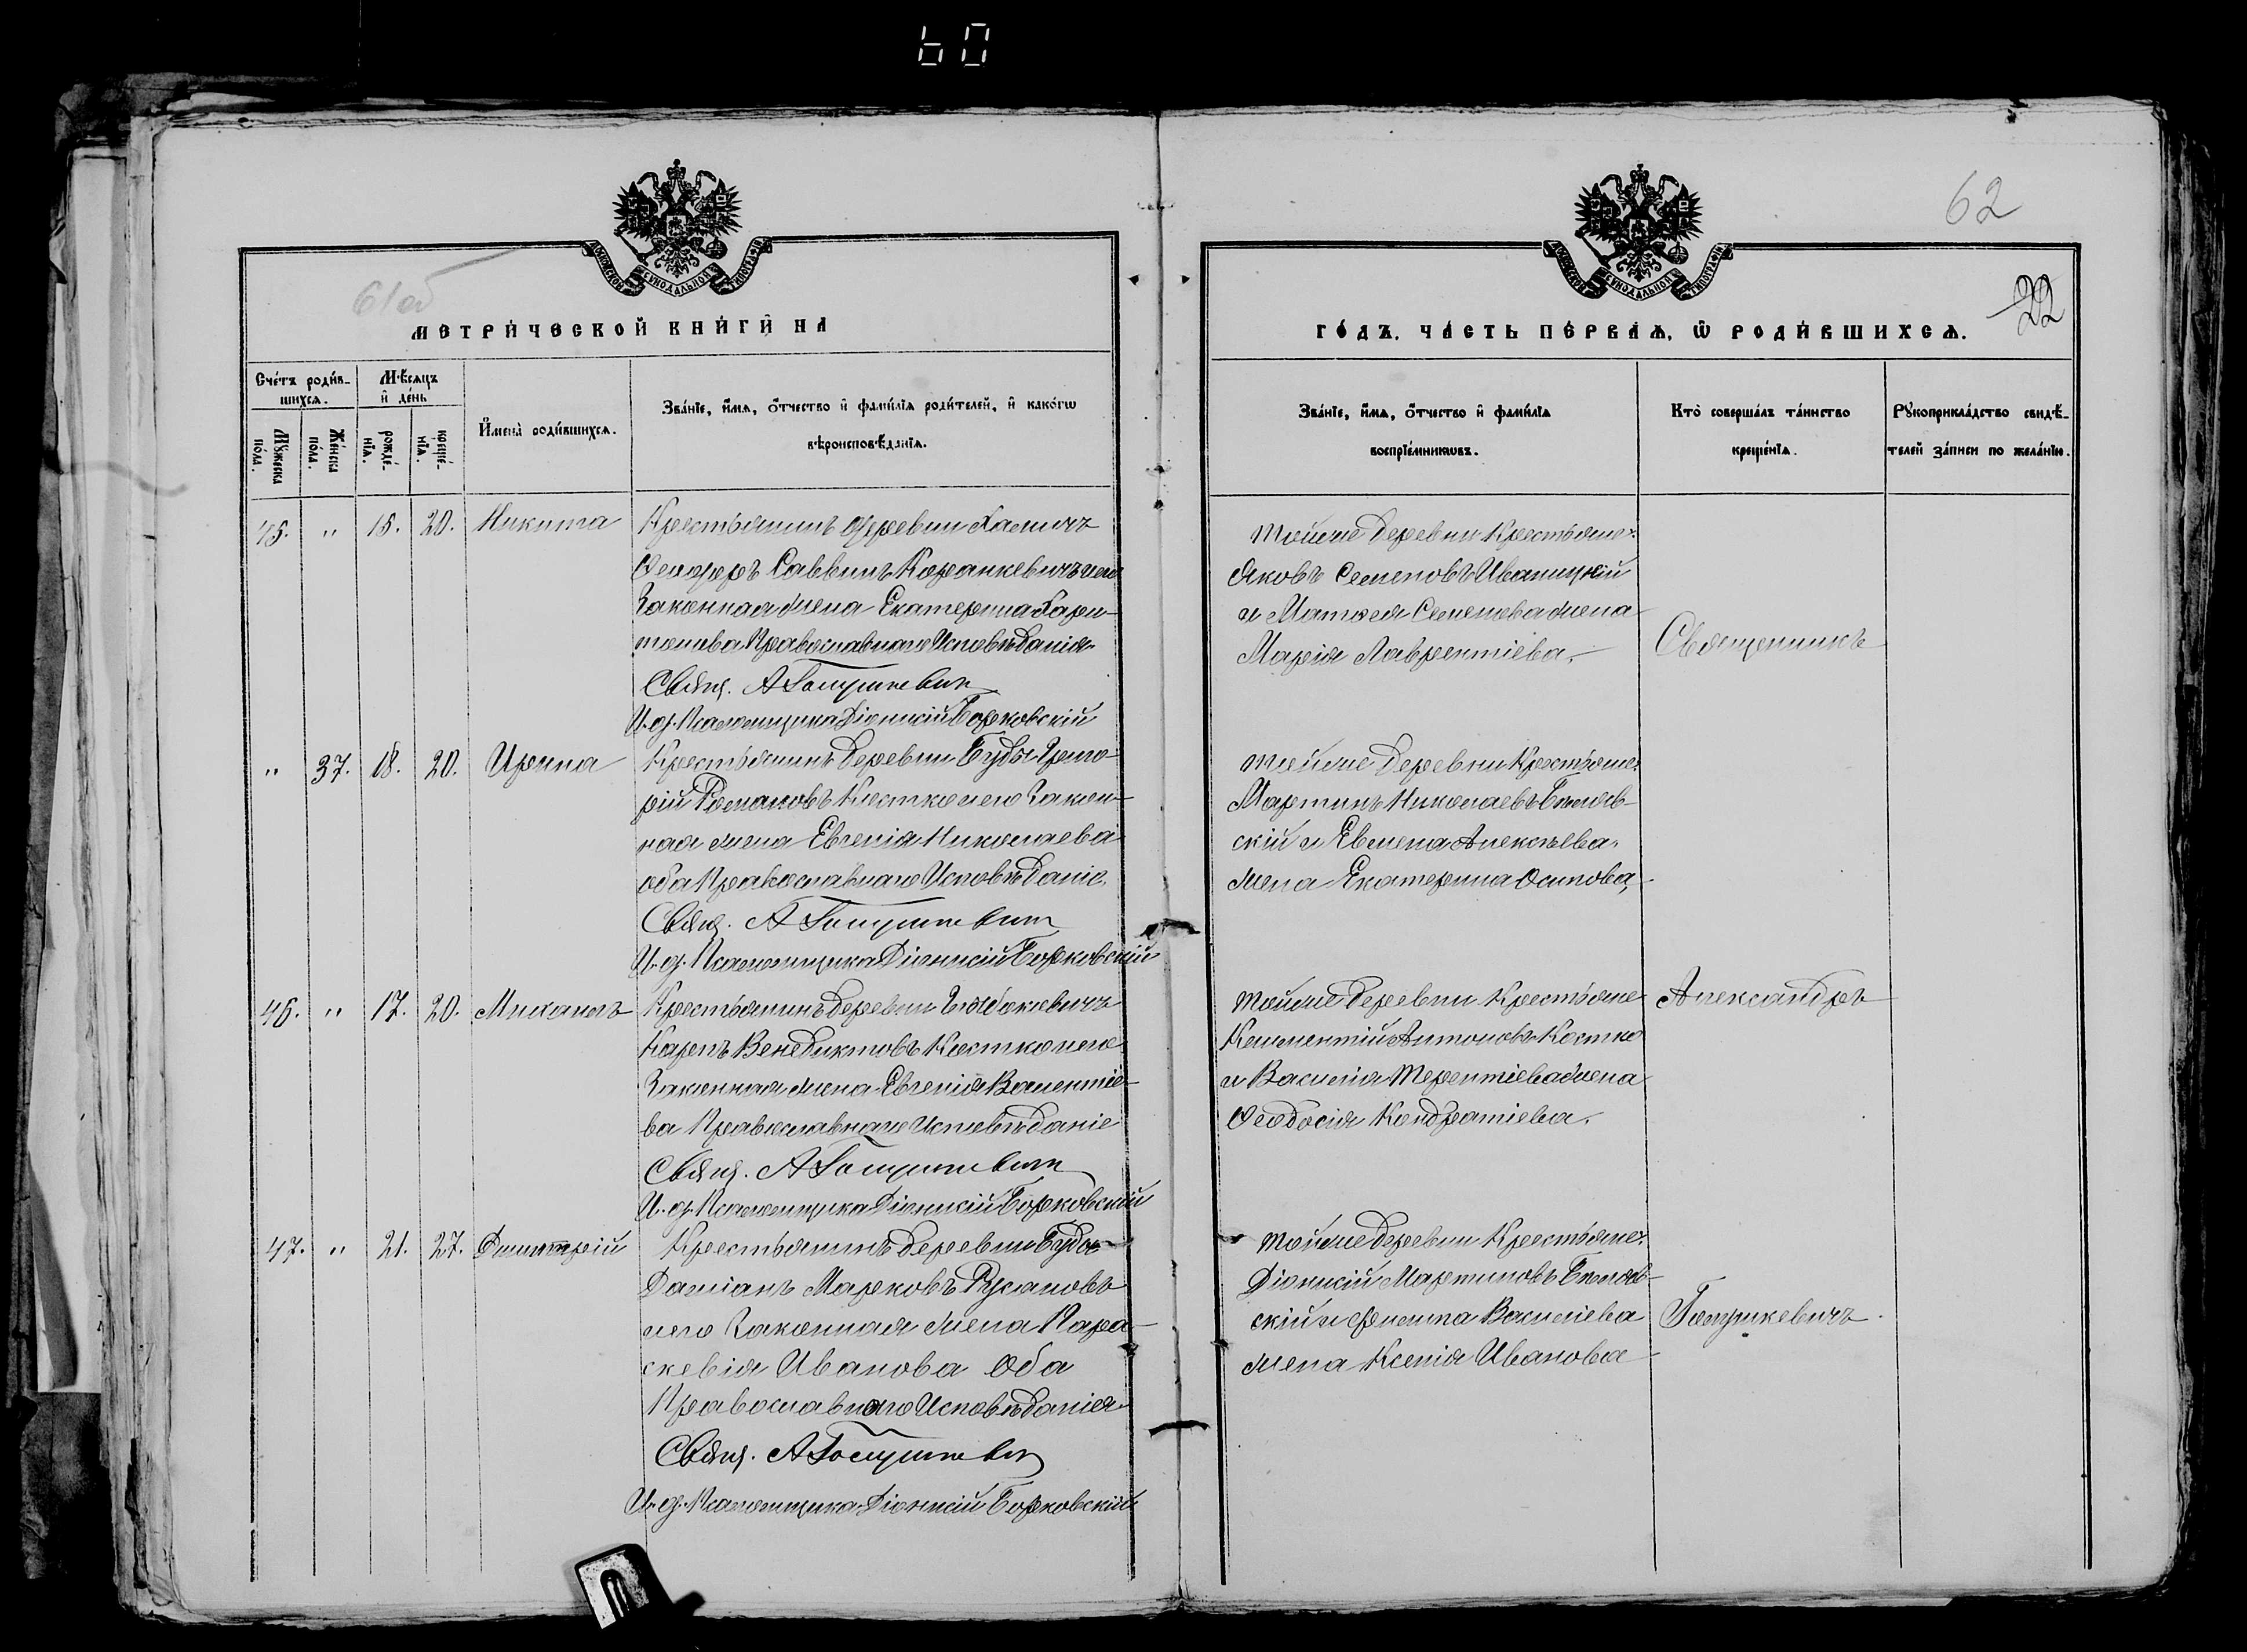 60
62
22
61об
МОСКОВСКОЙ СУНОДАЛЬНОЙ ТИПОГРАФІИ
МОСКОВСКОЙ СУНОДАЛЬНОЙ ТИПОГРАФІИ
МЕТРИ́ЧЕСКОЙ КНИ́ГИ НА
ГО́ДЪ. ЧА́СТЬ ПЕ́РВАѦ, Ѿ РОДИ́ВШИХСѦ.
Сче́тъ роди́в-
шихсѧ.
Мѣ́сѧцъ
и҆ де́нь
Мꙋ́жеска
по́ла.
Же́нска
по́ла.
рожде́-
нїѧ.
креще́-
нїѧ.
И҆мена̀ роди́вшихсѧ.
Зва́нїе, и҆́мѧ, ѻ҆́тчество и҆ фами́лїѧ роди́телей, и҆ како́гѡ
вѣроисповѣ́данїѧ.
Зва́нїе, и҆́мѧ, ѻ҆́тчество и҆ фами́лїѧ
воспрїе́мникѡвъ.
Кто̀ соверша́лъ та́инство
креще́нїѧ.
Рꙋкоприкла́дство свидѣ́-
телей за́писи по жела́нїю.
45. " 15. 20. Никита
Крестьянинъ деревни
Феодоръ Саввинъ Коранкевичъ и его
Законная жена Екатерина Хари-
тонова Православнаго Исповѣданія
Свящ. А Гоцушкевич
И. д. Псаломщика Діонисій Борковскій
Тойже деревни Крестьяне:
Яковъ Семеновъ Иваницкій
и Матѳея Семенова жена
Марія Лаврентіева.
Священникъ
" 37. 18. 20. Ирина
Крестьянинъ деревни Буды Григо-
рій Романовъ Костко и его Закон-
ная жена Евгенія Николаева
оба Православнаго Исповѣданіе.
Свящ. А Гоцушкевич
И. д. Псаломщика Діонисій Борковскій
Тойже деревни Крестьяне:
Мартинъ Николаевъ
скій и Евмена Алексѣева
жена Екатерина Осипова,
46. " 17. 20. Михаилъ
Крестьянинъ деревни
Карпъ Венедиктовъ Костко и его
Законная жена Евгенія Валентіе-
ва Православнаго Исповѣданіе
Свящ. А Гоцушкевич
И. д. Псаломщика Діонисій Борковскій
Тойже деревни Крестьяне
Климентій Антоновъ Костко
и Василія Терентіева жена
Ѳеодосія Кондратіева.
Александръ
47. " 21. 27. Димитрій
Крестьянинъ деревни Буды
Даміанъ Марковъ Русановъ
и его Законная жена Пара-
скевія Иванова Оба
Православнаго Исповѣданія
Свящ. А Гоцушкевич
И. д. Псаломщика Діонисій Борковскій
Тойже деревни Крестьяне:
Діонисій Мартиновъ
скій и Филиппа Василіева
жена Ксенія Иванова